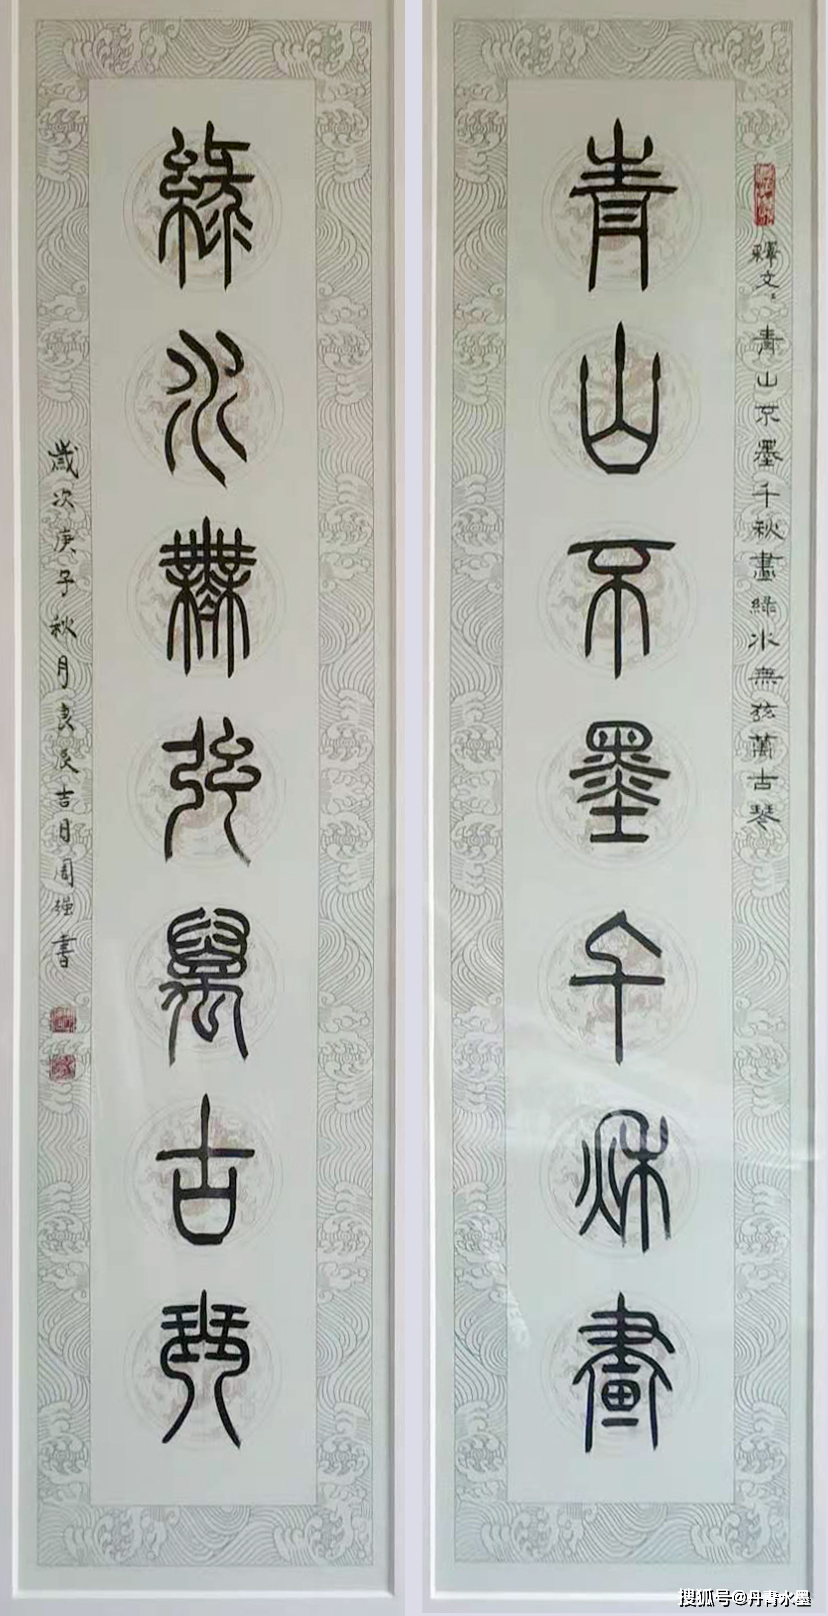 青山不墨千秋畫
釋文：青山不墨千秋畫綠水無弦萬古琴
綠水無弦萬古琴
歲次庚子秋月良辰吉日周強書
搜狐号@丹青水墨